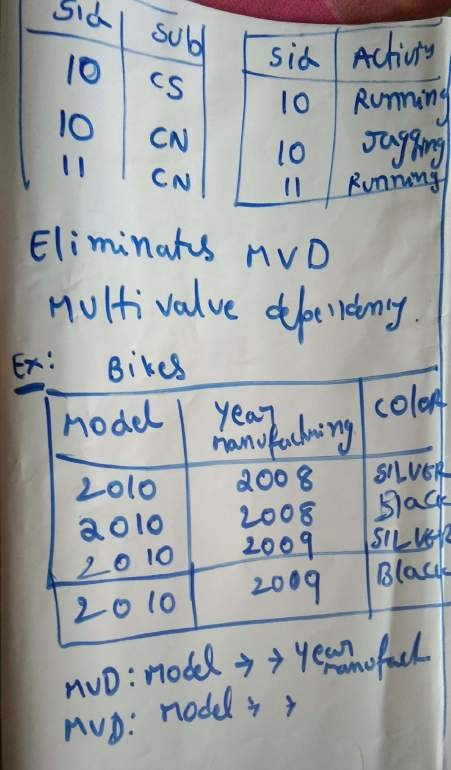 Sid Sub
10 CS
10 CN
11 CN
Sid Activity
10 Running
10 Jagging
11 Running
Eliminates MVD
Multi value dependency.
Ex: Bikes
Model Year manufactring Color
2010 2008 SILVER
2010 2008 Black
2010 2009 SILVER
2010 2009 Black
MVD: Model →→ Year manufact
MVD: Model →→